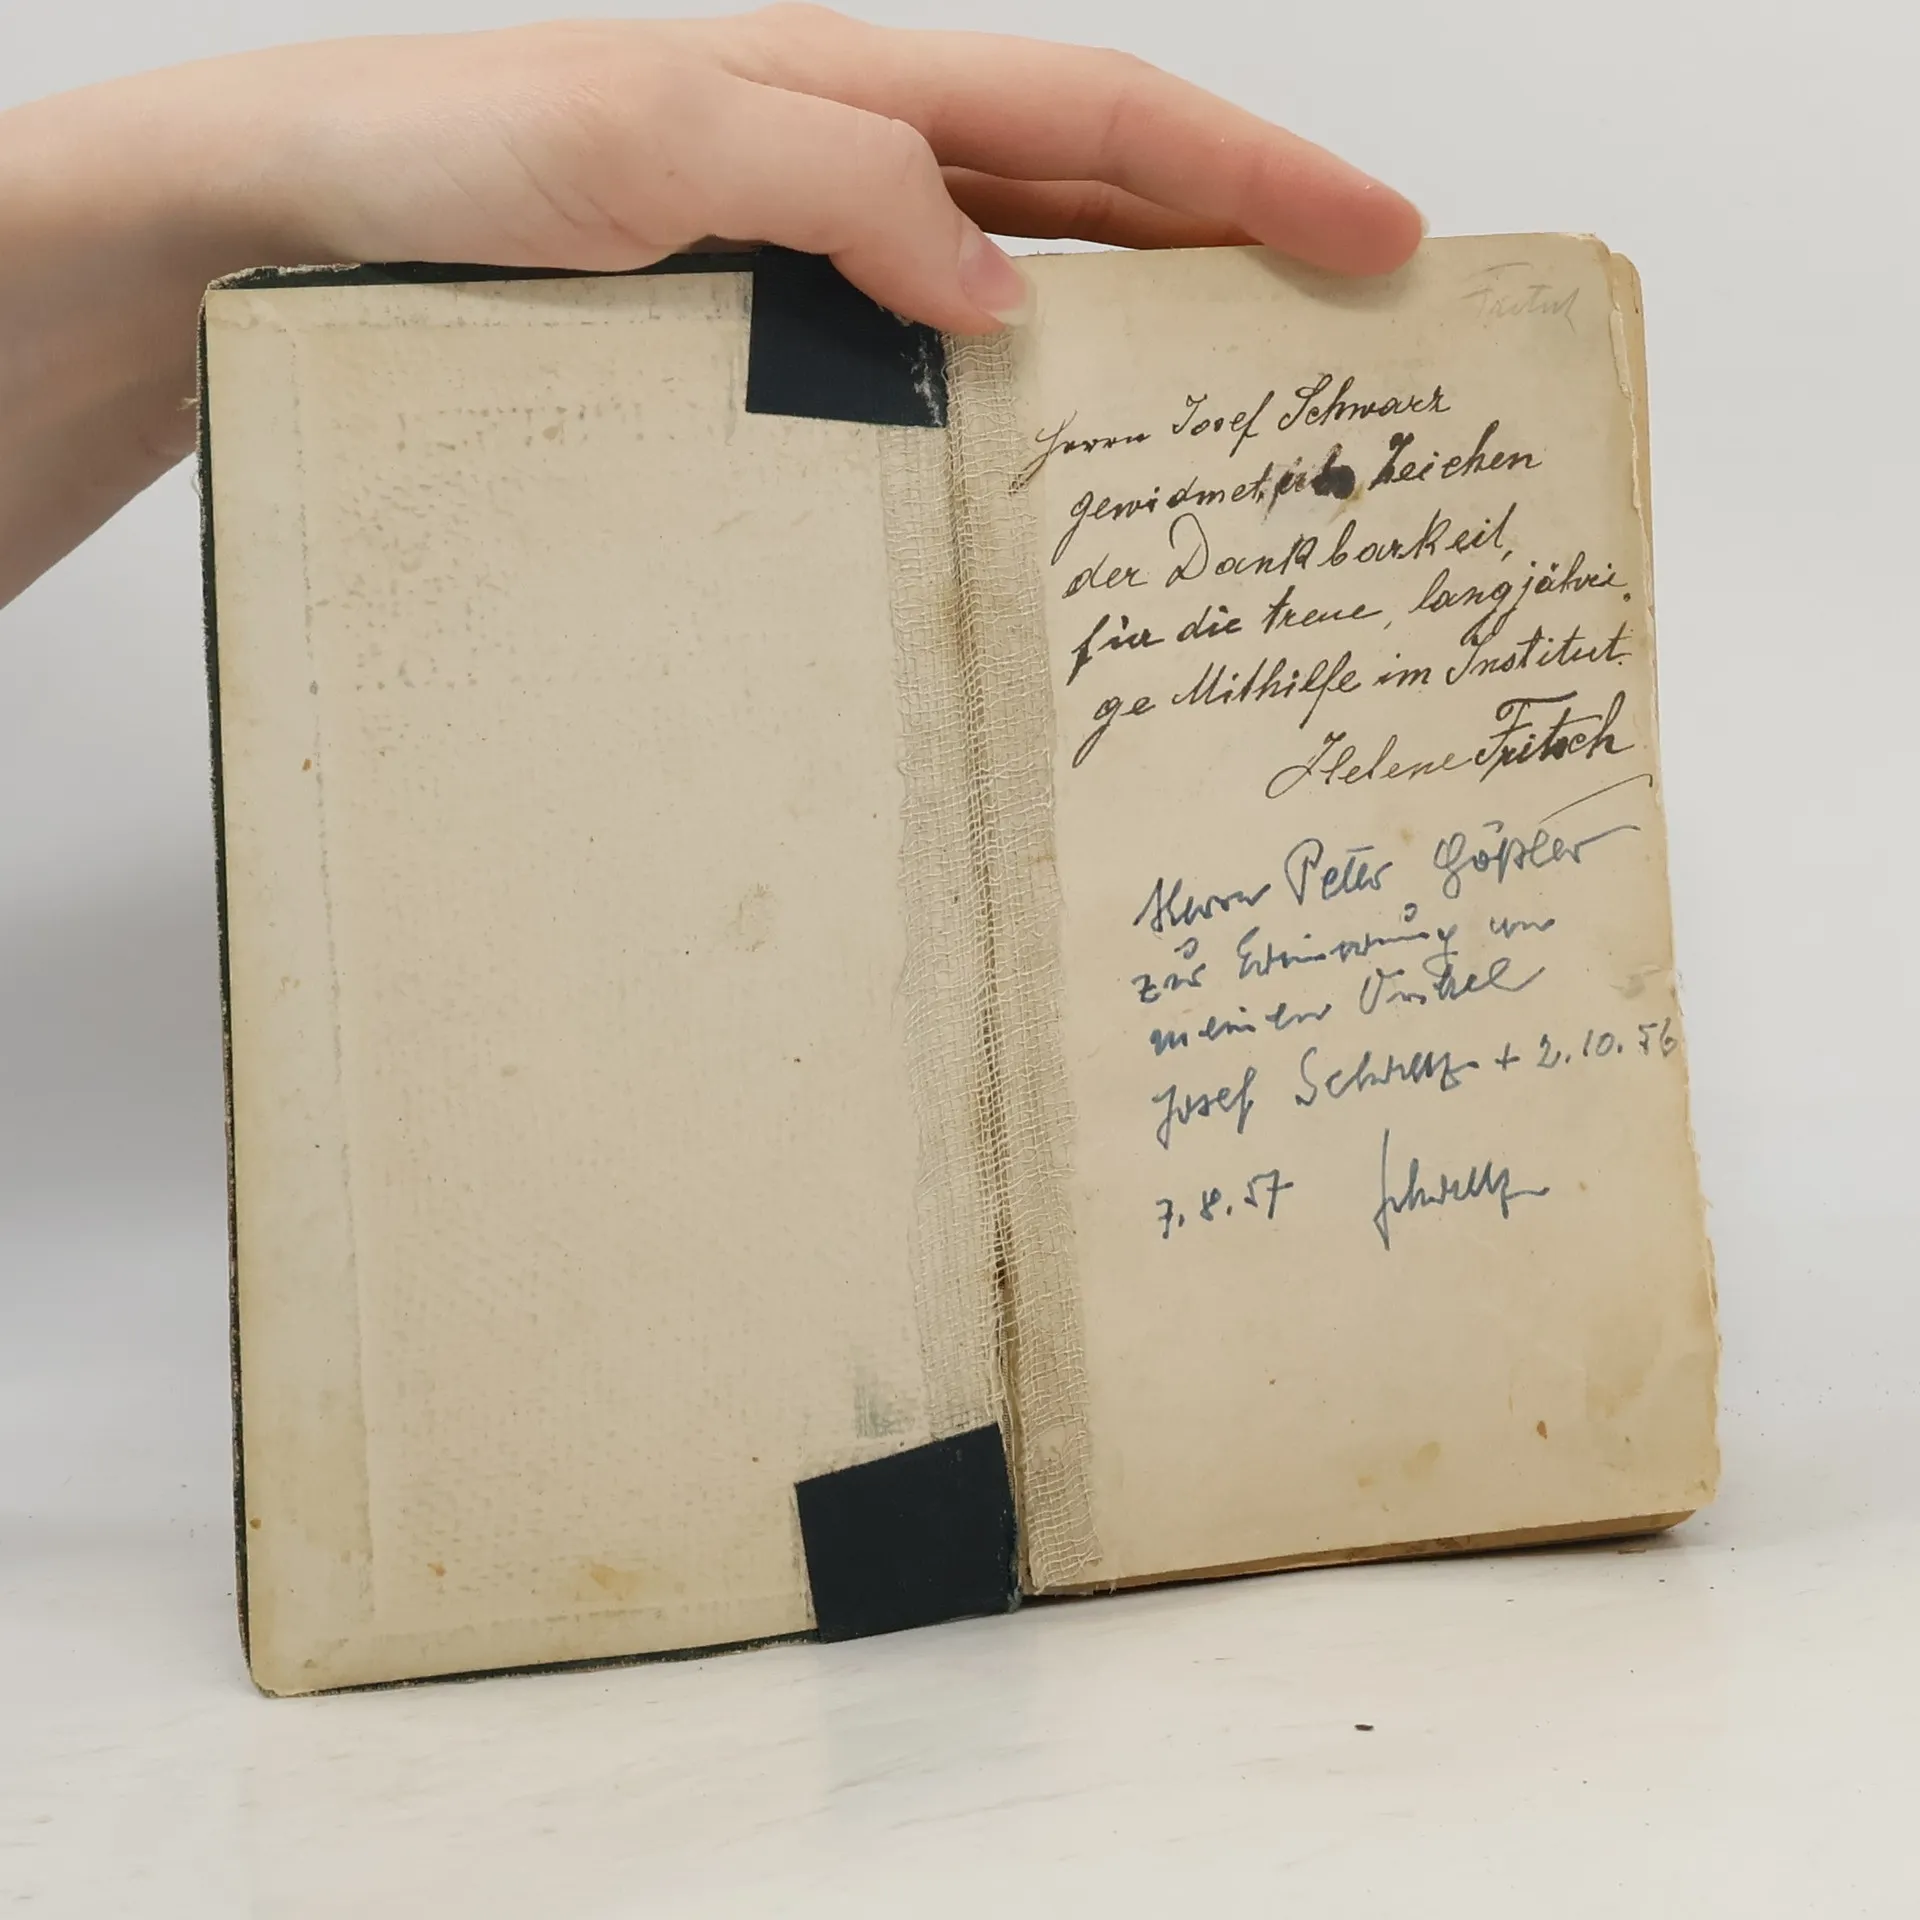 Herrn Josef Schwarz
gewidmet, als Zeichen
der Dankbarkeit,
für die treue, langjähri-
ge Mithilfe im Institut.
Helene Fritsch
Herrn Peter Gößler
zur Erinnerung an
meinen Onkel
Josef Schwarz + 2.10.56
7.8.57 Schwarz